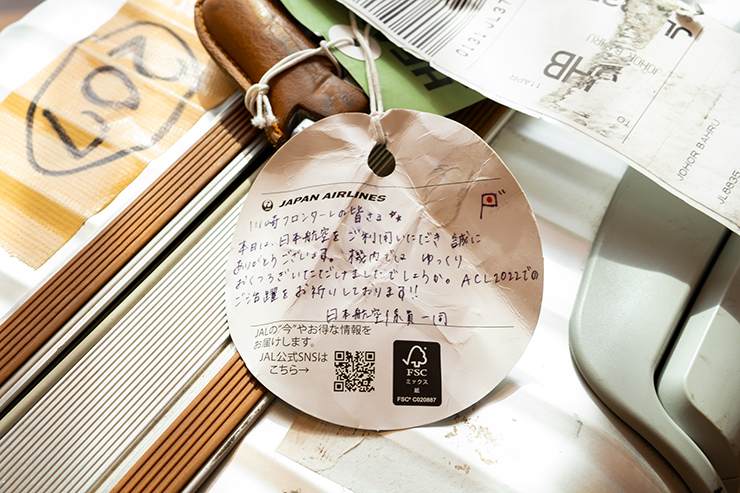 LOZ
JL37
0131 JL37
JOHOR BAHRU
JHB
11APR
TO
JOHOR BAHRU
JL8835
JAPAN AIRLINES
川崎フロンターレの皆さま
本日は、日本航空をご利用いただき誠に
ありがとうございます。機内では ゆっくり
おくつろぎいただけましたでしょうか。ACL2022での
ご活躍をお祈りしております!!
日本航空係員一同
JALの“今”やお得な情報を
お届けします。
JAL公式SNSは
こちら→
FSC
ミックス
紙
FSC® C020887